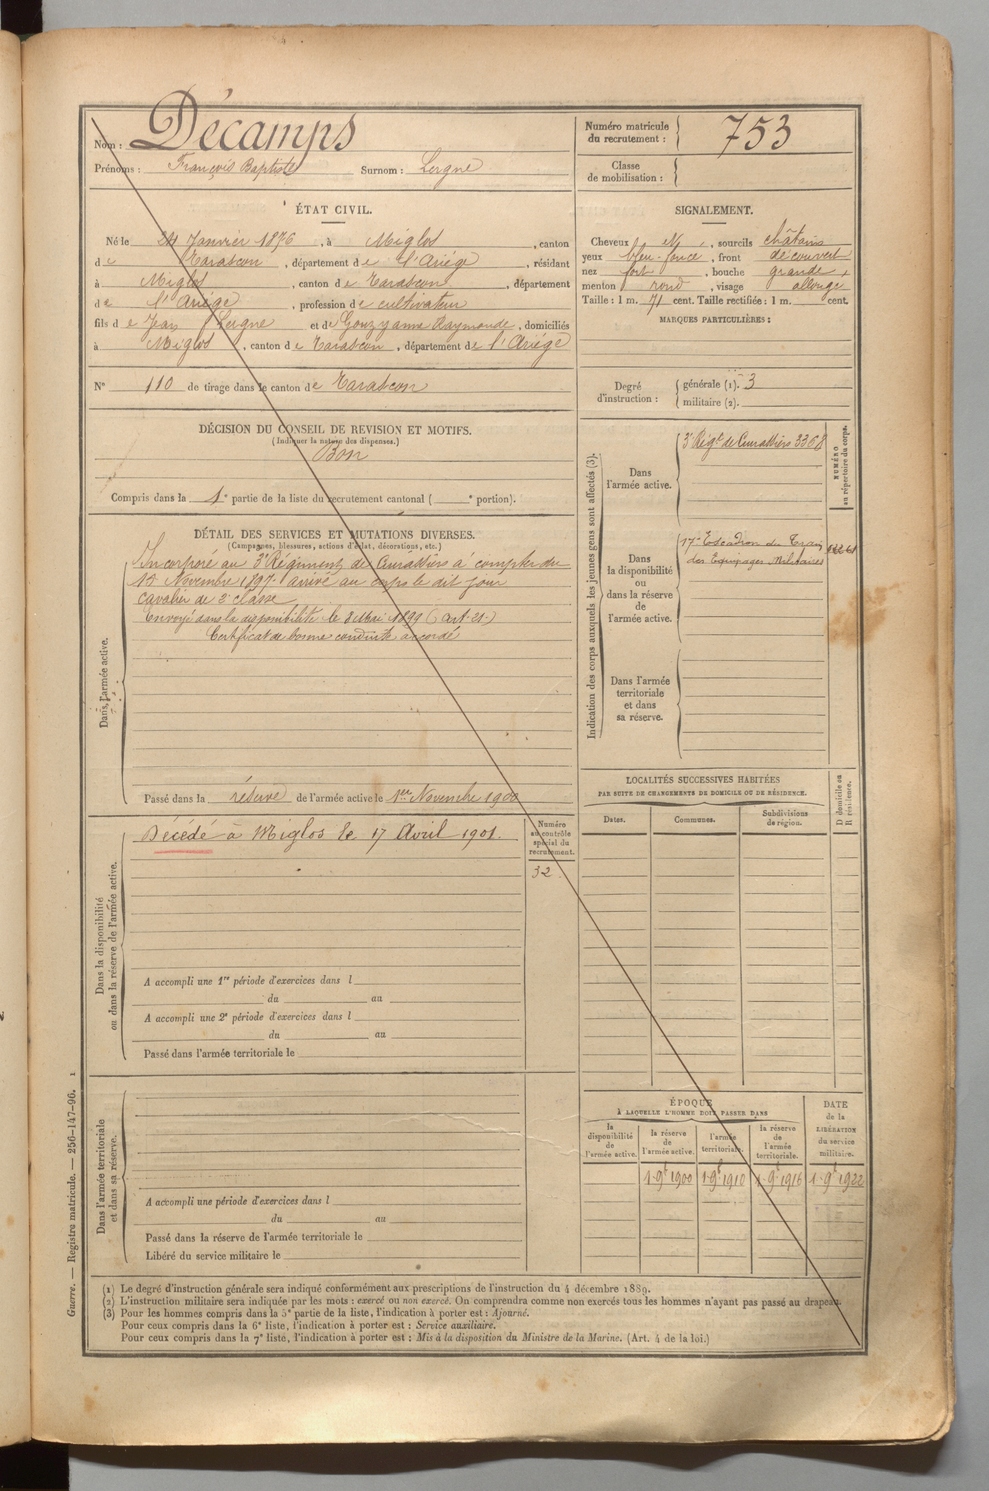 Nom : Décamps
Prénoms : François Baptiste Surnom : Lergne
Numéro matricule du recrutement : 753
Classe de mobilisation :
ÉTAT CIVIL.
Né le 24 Janvier 1876, à Miglos, canton
de Tarascon, département de l'Ariége, résidant
à Miglos, canton de Tarascon, département
de l'Ariége, profession de cultivateur
fils de Jean Lergne et de Gouzy anne Raymonde, domiciliés
à Miglos, canton de Tarascon, département de l'Ariége
N° 110 de tirage dans le canton de Tarascon
SIGNALEMENT.
Cheveux et, sourcils châtains
yeux bleu-foncé, front découvert
nez fort, bouche grande,
menton rond, visage allongé
Taille : 1 m. 71 cent. Taille rectifiée : 1 m. cent.
MARQUES PARTICULIÈRES :
Degré d'instruction : générale (1). 3
militaire (2).
DÉCISION DU CONSEIL DE REVISION ET MOTIFS.
(Indiquer la nature des dispenses.)
Bon
Compris dans la 1e partie de la liste du recrutement cantonal ( e portion).
DÉTAIL DES SERVICES ET MUTATIONS DIVERSES.
(Campagnes, blessures, actions d'éclat, décorations, etc.)
Dans l'armée active.
Incorporé au 3e Régiment de Cuirassiers à compter du
15 Novembre 1897. arrivé au corps le dit jour
cavalier de 2e classe
Envoyé dans la disponibilité le 8 Mai 1899 (art. 21.)
Certificat de bonne conduite accordé
Passé dans la réserve de l'armée active le 1er Novembre 1900
Indication des corps auxquels les jeunes gens sont affectés (3).
NUMÉRO au répertoire du corps.
Dans l'armée active.
3e Régt de Cuirassiers 3368
Dans la disponibilité ou dans la réserve de l'armée active.
17e Escadron du Train
des Equipages Militaires
Dans l'armée territoriale et dans sa réserve.
Dans la disponibilité ou dans la réserve de l'armée active.
Décédé à Miglos le 17 Avril 1901.
Numéro au contrôle spécial du recrutement.
32
A accompli une 1re période d'exercices dans l
du au
A accompli une 2e période d'exercices dans l
du au
Passé dans l'armée territoriale le
LOCALITÉS SUCCESSIVES HABITÉES
PAR SUITE DE CHANGEMENTS DE DOMICILE OU DE RÉSIDENCE.
Dates. Communes. Subdivisions de région.
D domicile ou R résidence.
Dans l'armée territoriale et dans sa réserve.
A accompli une période d'exercices dans l
du au
Passé dans la réserve de l'armée territoriale le
Libéré du service militaire le
ÉPOQUE
À LAQUELLE L'HOMME DOIT PASSER DANS
la disponibilité de l'armée active.
la réserve de l'armée active.
l'armée territoriale.
la réserve de l'armée territoriale.
DATE de la LIBÉRATION du service militaire.
1.9e 1900 1.9e 1910 1.9e 1916 1.9e 1922
(1) Le degré d'instruction générale sera indiqué conformément aux prescriptions de l'instruction du 4 décembre 1889.
(2) L'instruction militaire sera indiquée par les mots : exercé ou non exercé. On comprendra comme non exercés tous les hommes n'ayant pas passé au drapeau.
(3) Pour les hommes compris dans la 5e partie de la liste, l'indication à porter est : Ajourné.
Pour ceux compris dans la 6e liste, l'indication à porter est : Service auxiliaire.
Pour ceux compris dans la 7e liste, l'indication à porter est : Mis à la disposition du Ministre de la Marine. (Art. 4 de la loi.)
Guerre. — Registre matricule. — 256-147-96.